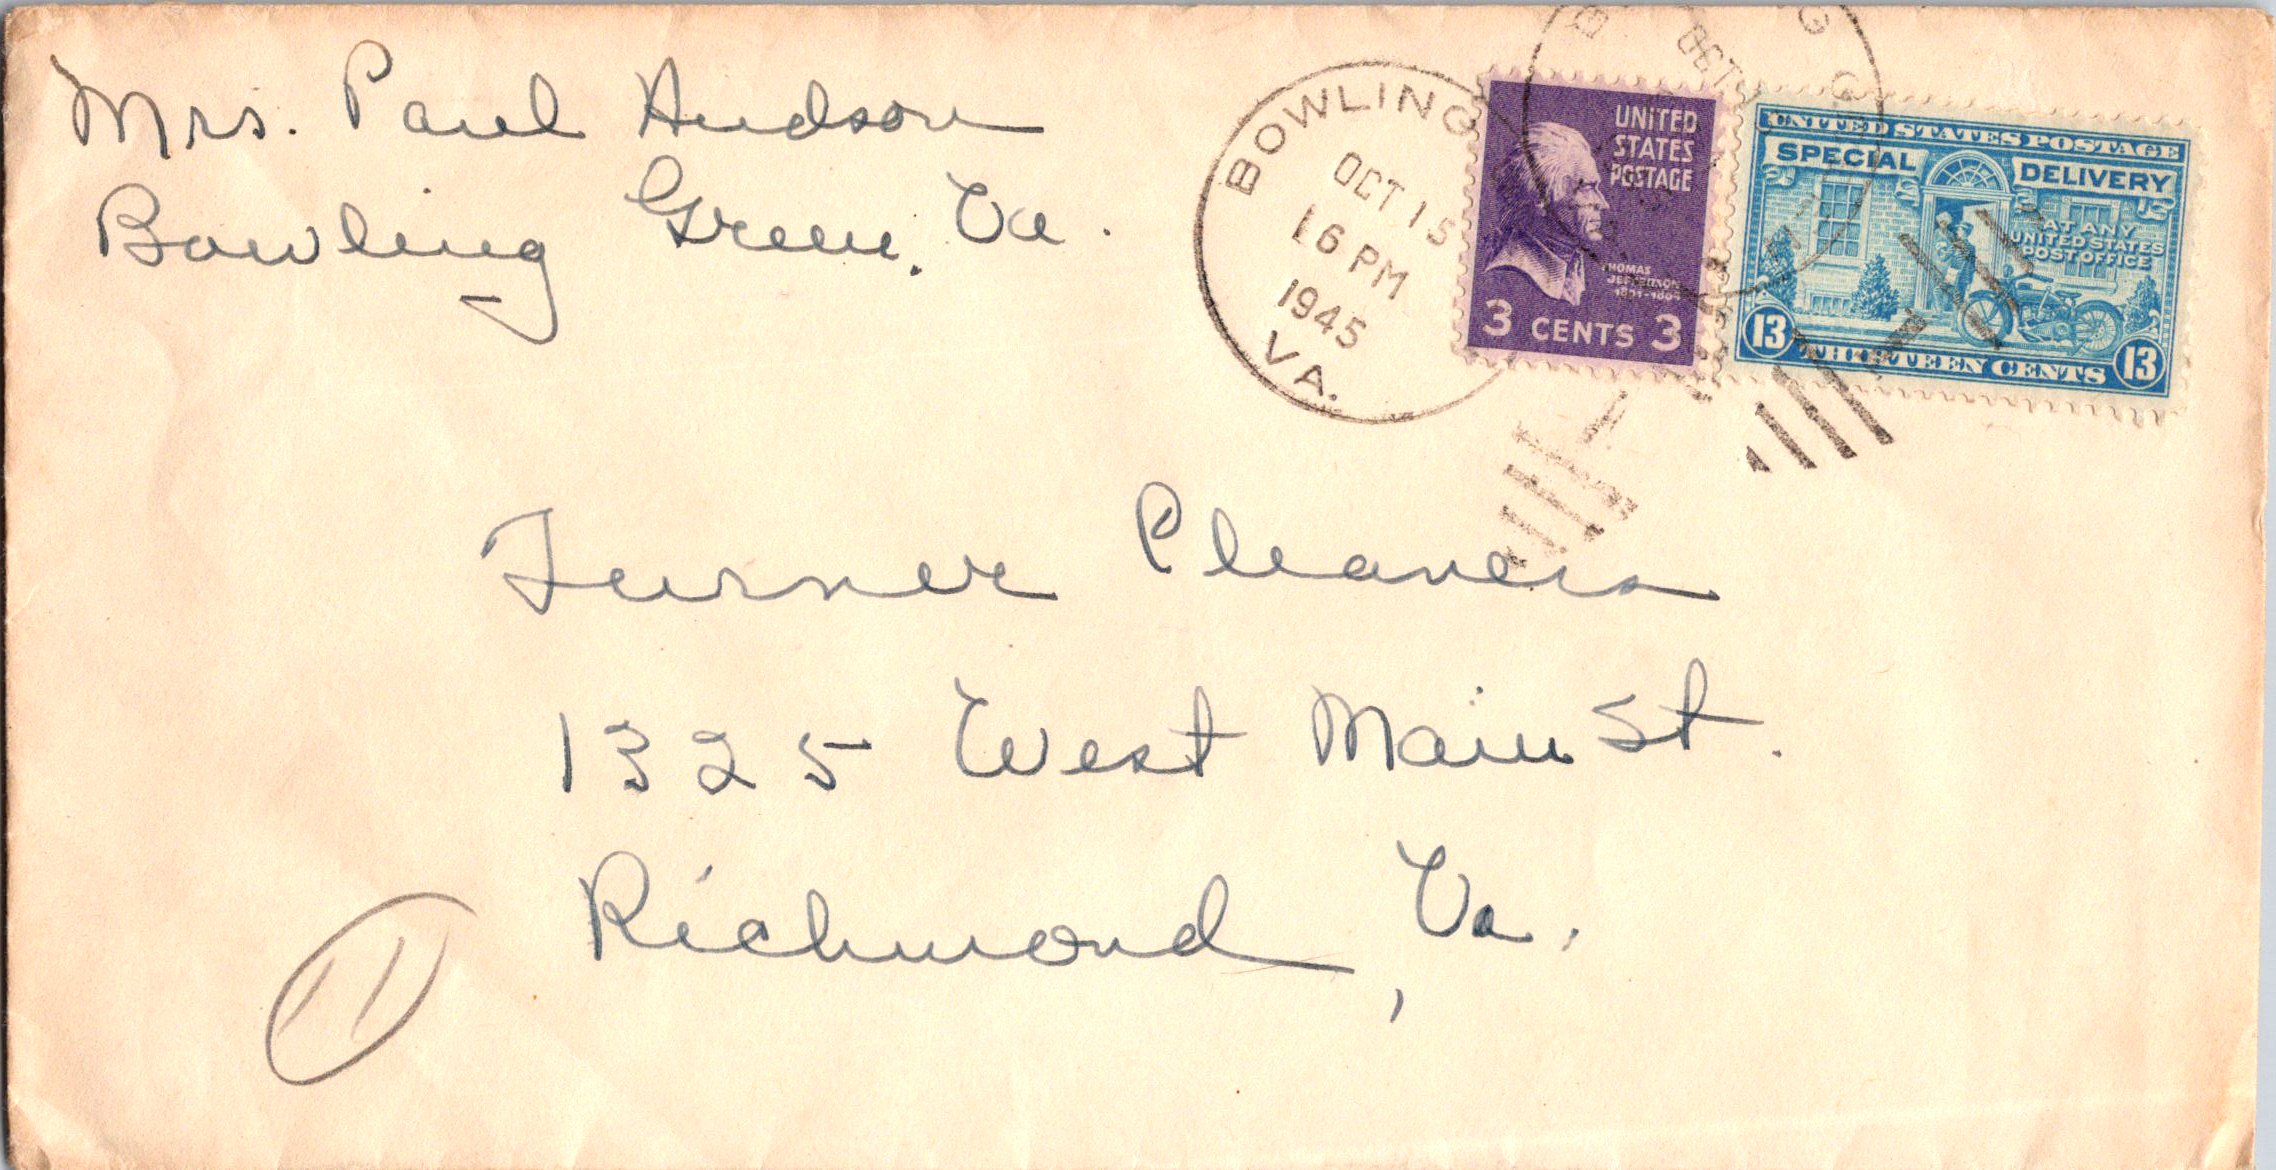 Mrs. Paul Hudson
Bowling Green, Va.
BOWLING
OCT 15
16 PM
1945
VA.
UNITED
STATES
POSTAGE
THOMAS
JEFFERSON
3 CENTS 3
UNITED STATES POSTAGE
SPECIAL DELIVERY
AT ANY
UNITED STATES
POST OFFICE
13 THIRTEEN CENTS 13
OCT
Turner Cleaners
1325 West Main St.
Richmond, Va.
11